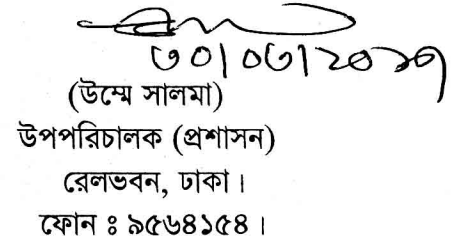 ৩০|০৩|২০১৭
(উম্মে সালমা)
উপপরিচালক (প্রশাসন)
রেলভবন, ঢাকা।
ফোন ঃ ৯৫৬৪১৫৪।